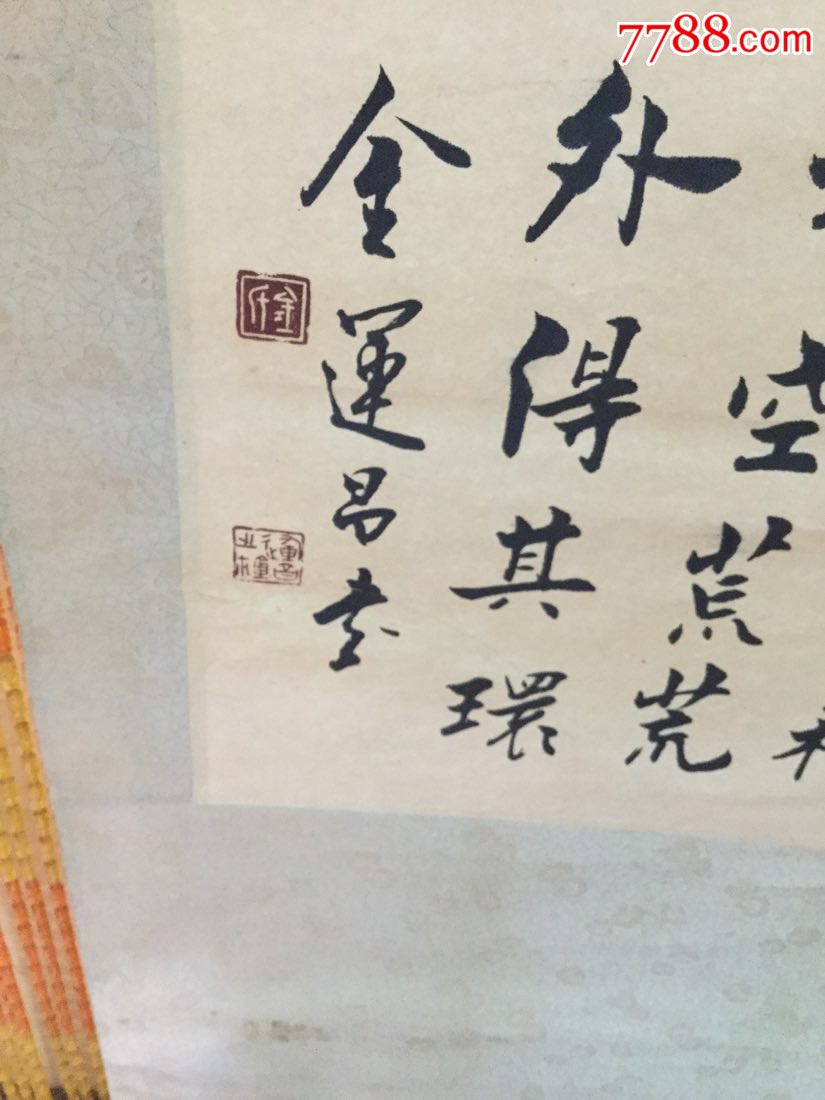 7788.com
空荒荒
外得其環
金運昌書